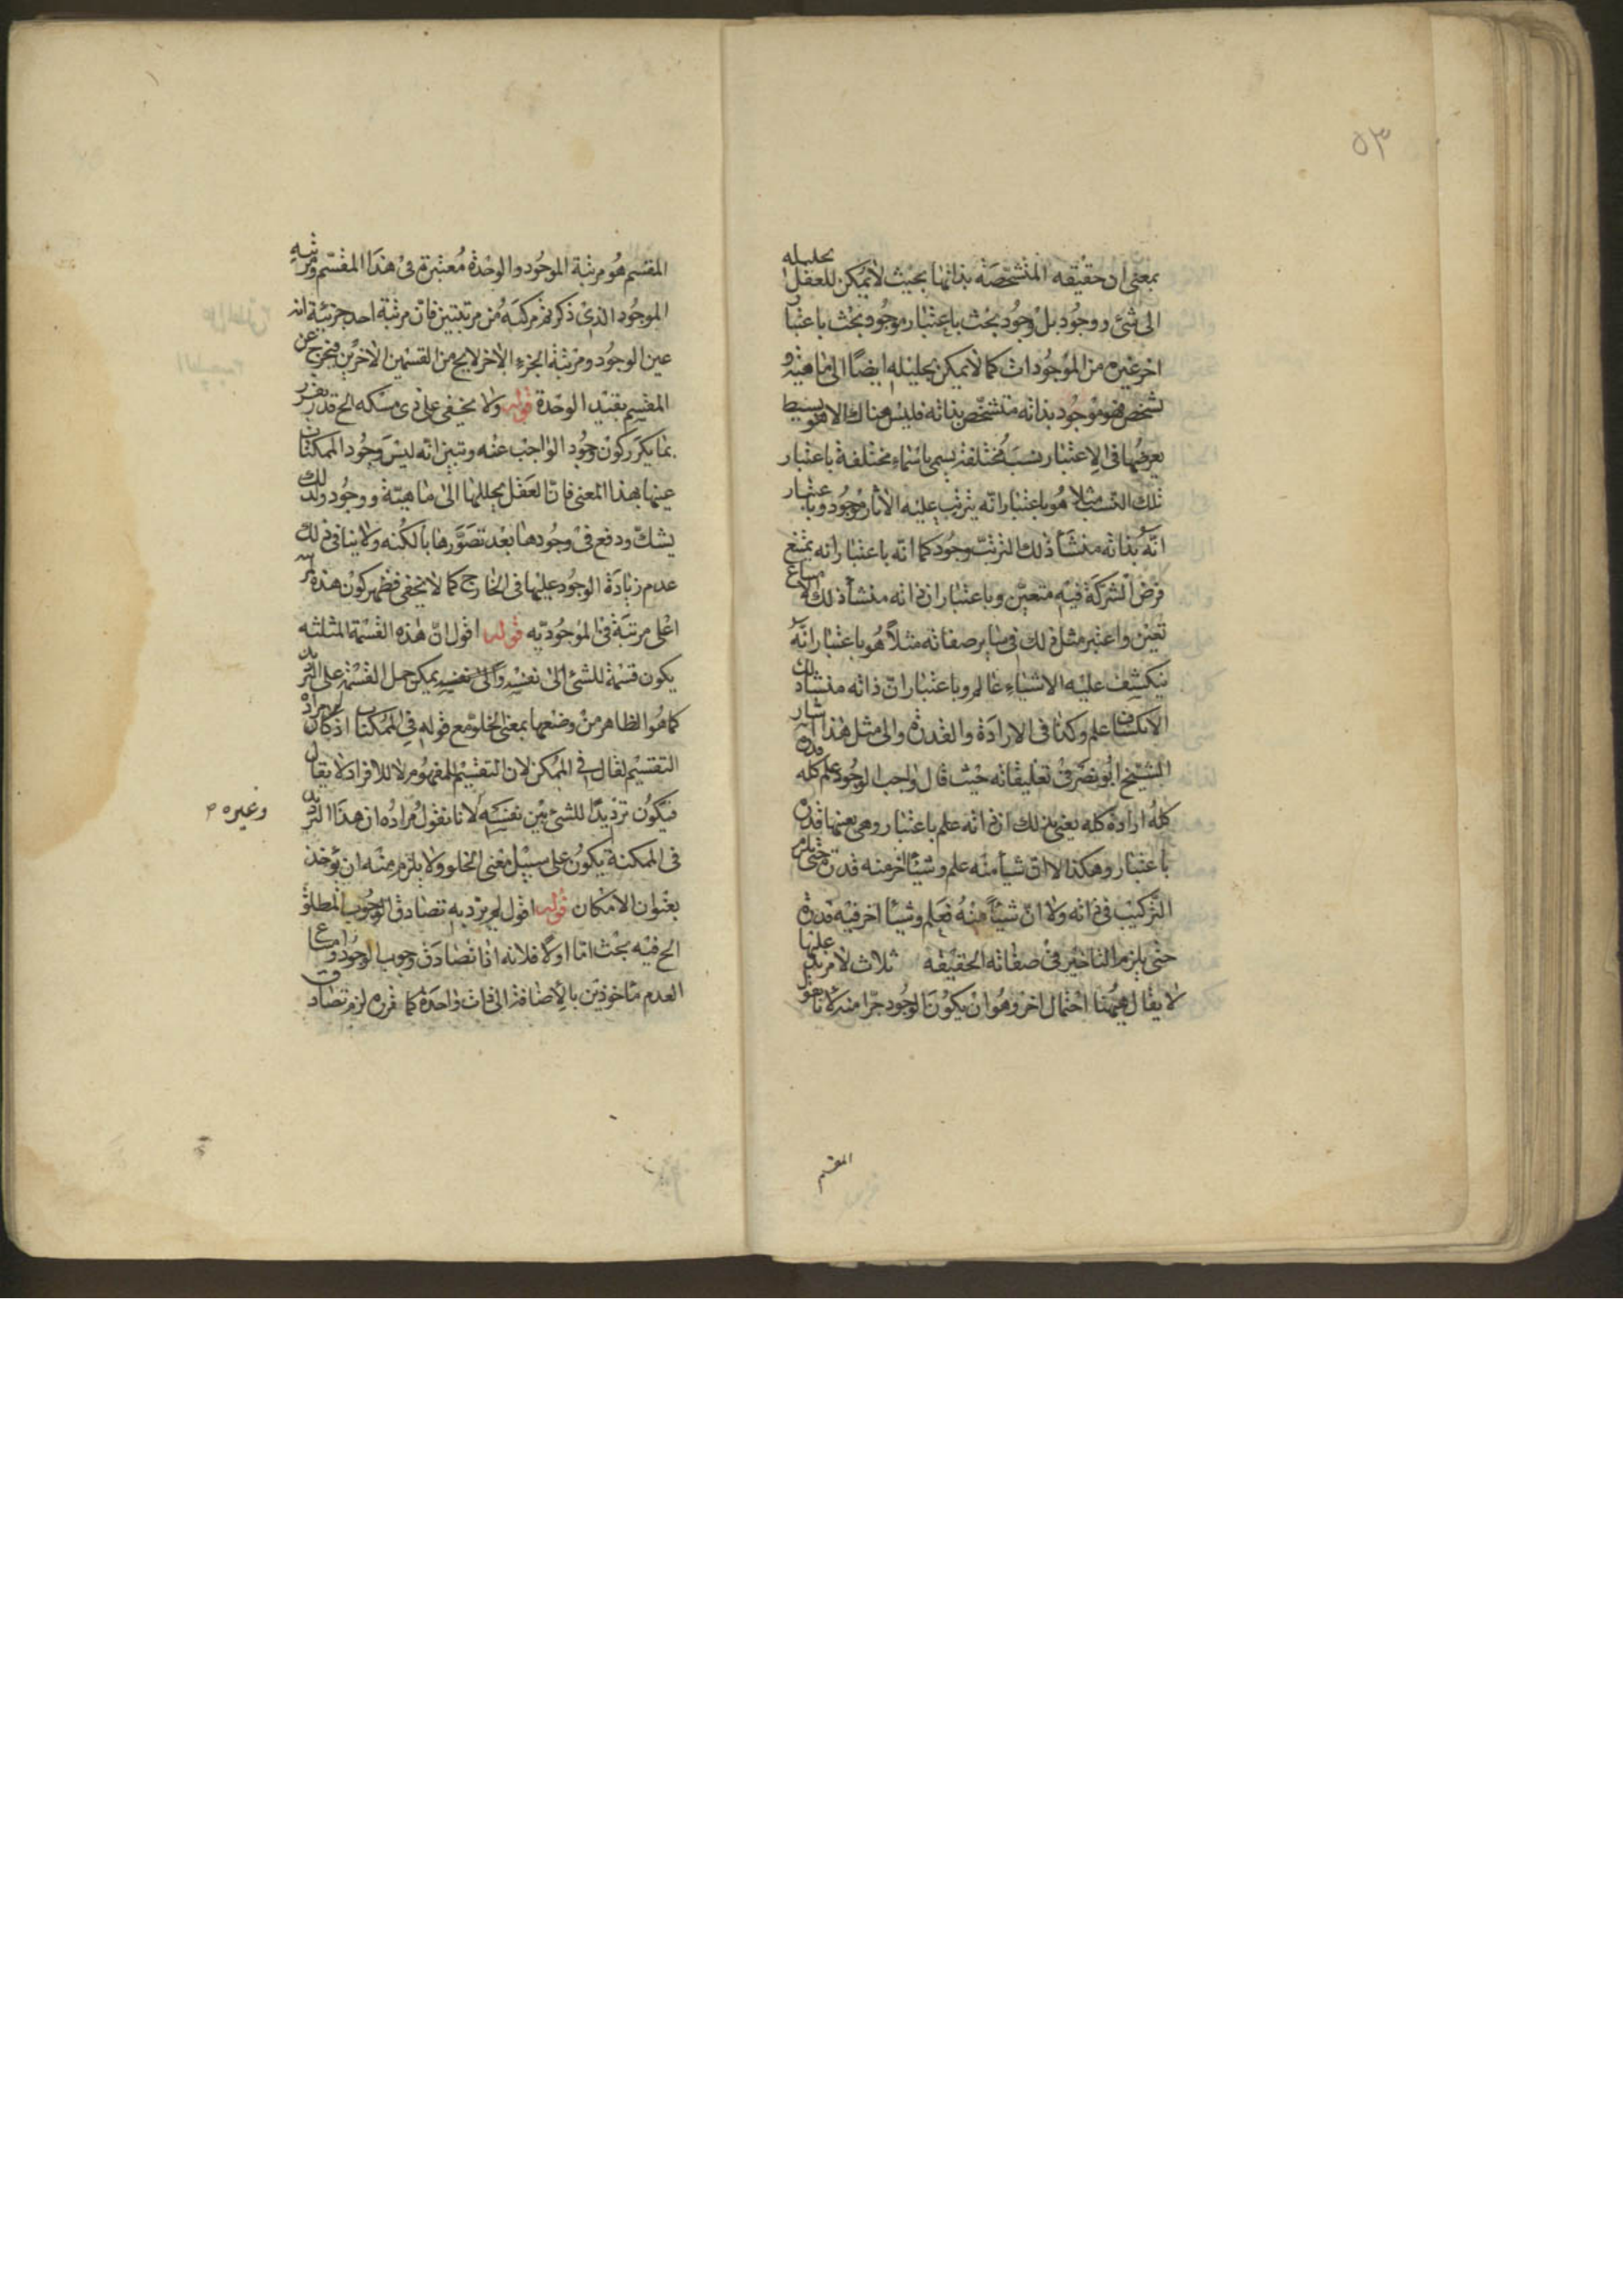 ٥٣
بمعنى ان حقيقه المتشخصة بذاتها بحيث لا يمكن للعقل تحليله
الى شئ ووجود بل وجود بحث باعتبار موجود بحث باعتبار
اخر غيره من الموجودات كما لا يمكن تحليله ايضا الى ماهية و
تشخص فهو موجود بذاته متشخص بذاته فليس هناك الا هو بسيط
يعرضها فى الاعتبار نسب مختلفة يسمى باسماء مختلفة باعتبار
تلك النسب مثلا هو باعتبار انه يترتب عليه الاثار موجود وباعتبار
انه بذاته منشأ ذلك الترتب وجود كما انه باعتبار انه يمتنع
فرض الشركة فيه متعين وباعتبار ان ذاته منشأ ذلك الامتناع
تعين واعتبر مثل ذلك فى ساير صفاته مثلا هو باعتبار انه
ينكشف عليه الاشياء عالم وباعتبار ان ذاته منشأ ذلك
الانكشاف علم وكذا فى الارادة والقدرة والى مثل هذا اشار
الشيخ ابو نصر فى تعليقاته حيث قال واجب الوجود علم كله قدرة
كله ارادة كله يعنى بذلك ان ذاته علم باعتبار وهى بعينها قدرة
باعتبار وهكذا لا ان شيأ منه علم وشيئا اخر منه قدرة حتى يلزم
التركيب فى ذاته ولا ان شيئا منه علم وشيئا اخر فيه قدرة
حتى يلزم التاخير فى صفاته الحقيقة ثلاث لا مزيد عليها
لا يقال ههنا احتمال اخر وهو ان يكون الوجود جزا منه لانا نقول
المقسم
المقسم هو مرتبة الموجود والوحدة معتبرة فى هذا المقسم ومرتبة
الموجود الذى ذكرتم مركبة من مرتبتين فان مرتبة احد جزئية انه
عين الوجود ومرتبة الجزء الاخر لا يخ من القسمين الاخرين فيخرج عن
المقسم بقيد الوحدة قوله ولا يخفى على ذى مسكه الخ قد تقرر
بما يكرر كون وجود الواجب عنه وتبين انه ليس وجود الممكنات
عينها بهذا المعنى فان العقل يحللها الى ماهية ووجود ولذلك
يشك ودفع فى وجودها بعد تصورها بالكنه ولا ينافى ذلك
عدم زيادة الوجود عليها فى الخارج كما لا يخفى فظهر كون هذه
اعلى مرتبة فى الموجودية قوله اقول ان هذه القسمة المثلثه
يكون قسمة للشئ الى نفسه والى نفسه يمكن حمل القسمة على الترديد
كما هو الظاهر من وضعها بمعنى الخلو مع قوله فى الممكنات اذ كان مراده
التقسيم لقال فى الممكن لان التقسيم للمفهوم لا للافراد لا يقال
فيكون ترديدا للشئ بين نفسه لانا نقول مراده ان هذا الترديد
وغيره
فى الممكنة يكون على سبيل معنى الخلو ولا يلزم منه ان يؤخذ
بعنوان الامكان قوله اقول لم يرد به تصادق الوجوب المطلق
الخ فيه بحث اما اولا فلانه اذا تصادق وجوب الوجود وامتناع
العدم مأخوذين بالاضافة الى ذات واحدة كما قرره لزم تصادق